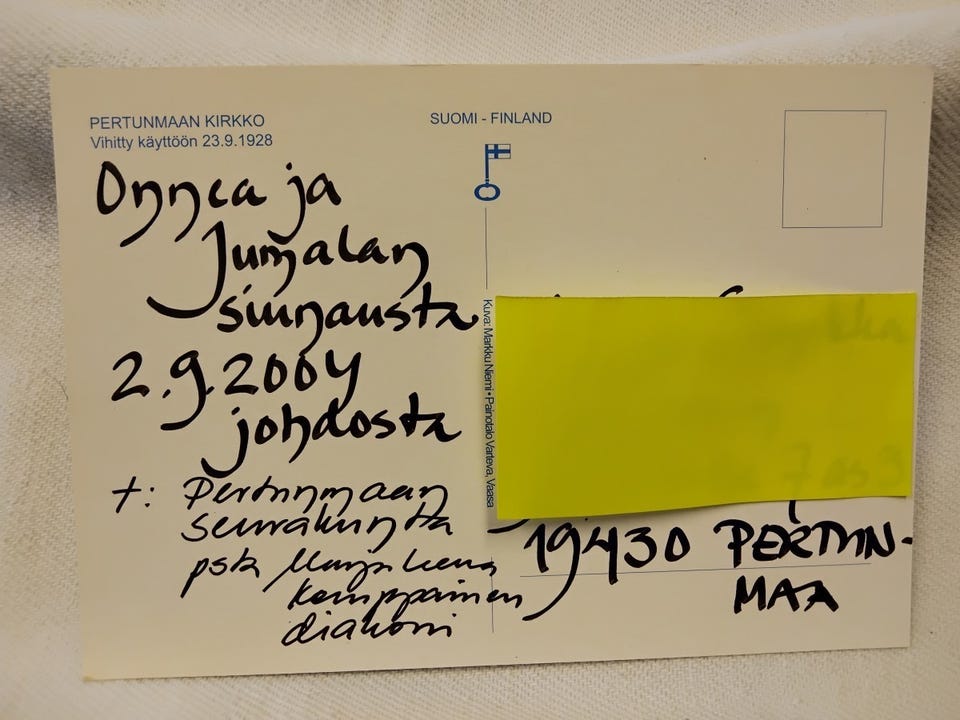 PERTUNMAAN KIRKKO
Vihitty käyttöön 23.9.1928
Onnea ja
Jumalan
siunausta
2.9.2004
johdosta
t: Pertunmaan
seurakunta
psta
Kemppainen
diakoni
SUOMI - FINLAND
Kuva: Markku Niemi • Painotalo Varteva, Vaasa
19430 PERTUN-
MAA